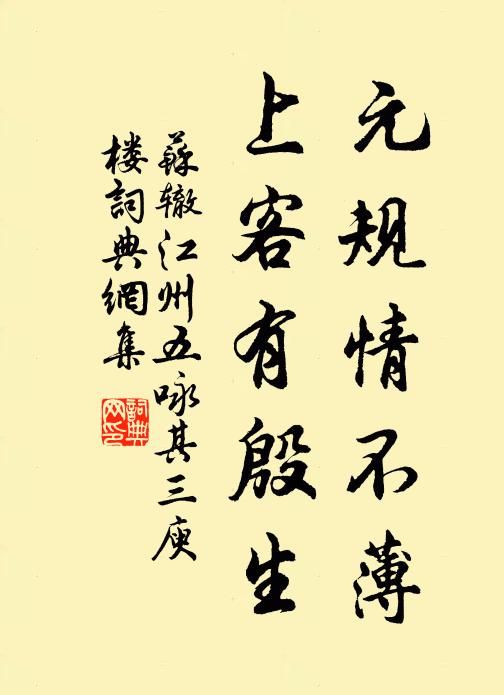 元规情不薄
上客有殷生
蘇辙江州五咏其三庾
楼詞典網集
詞典
网印